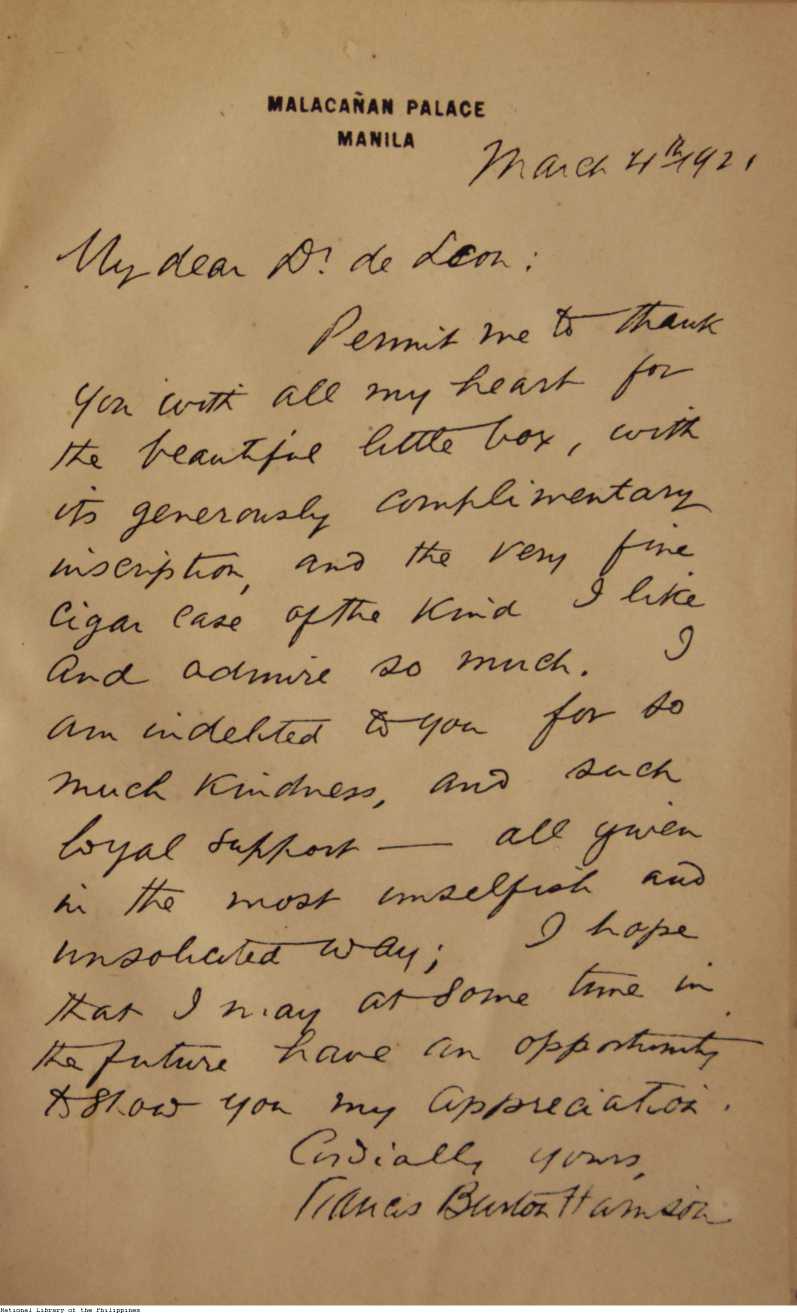 MALACAÑAN PALACE
MANILA
March 4th 1921
My dear Dr. de Leon:
Permit me to thank
you with all my heart for
the beautiful little box, with
its generously complimentary
inscription, and the very fine
cigar case of the kind I like
and admire so much. I
am indebted to you for so
much kindness, and such
loyal support — all given
in the most unselfish and
unsolicited way; I hope
that I may at some time in
the future have an opportunity
to show you my appreciation.
Cordially yours,
Francis Burton Harrison
National Library of the Philippines